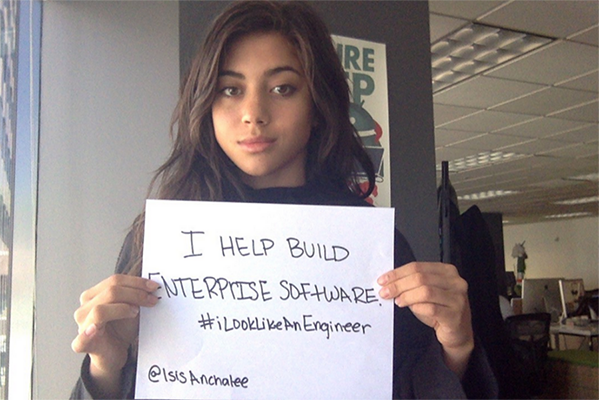 URE
P
I HELP BUILD
ENTERPRISE SOFTWARE.
#iLookLikeAnEngineer
@IsisAnchalee